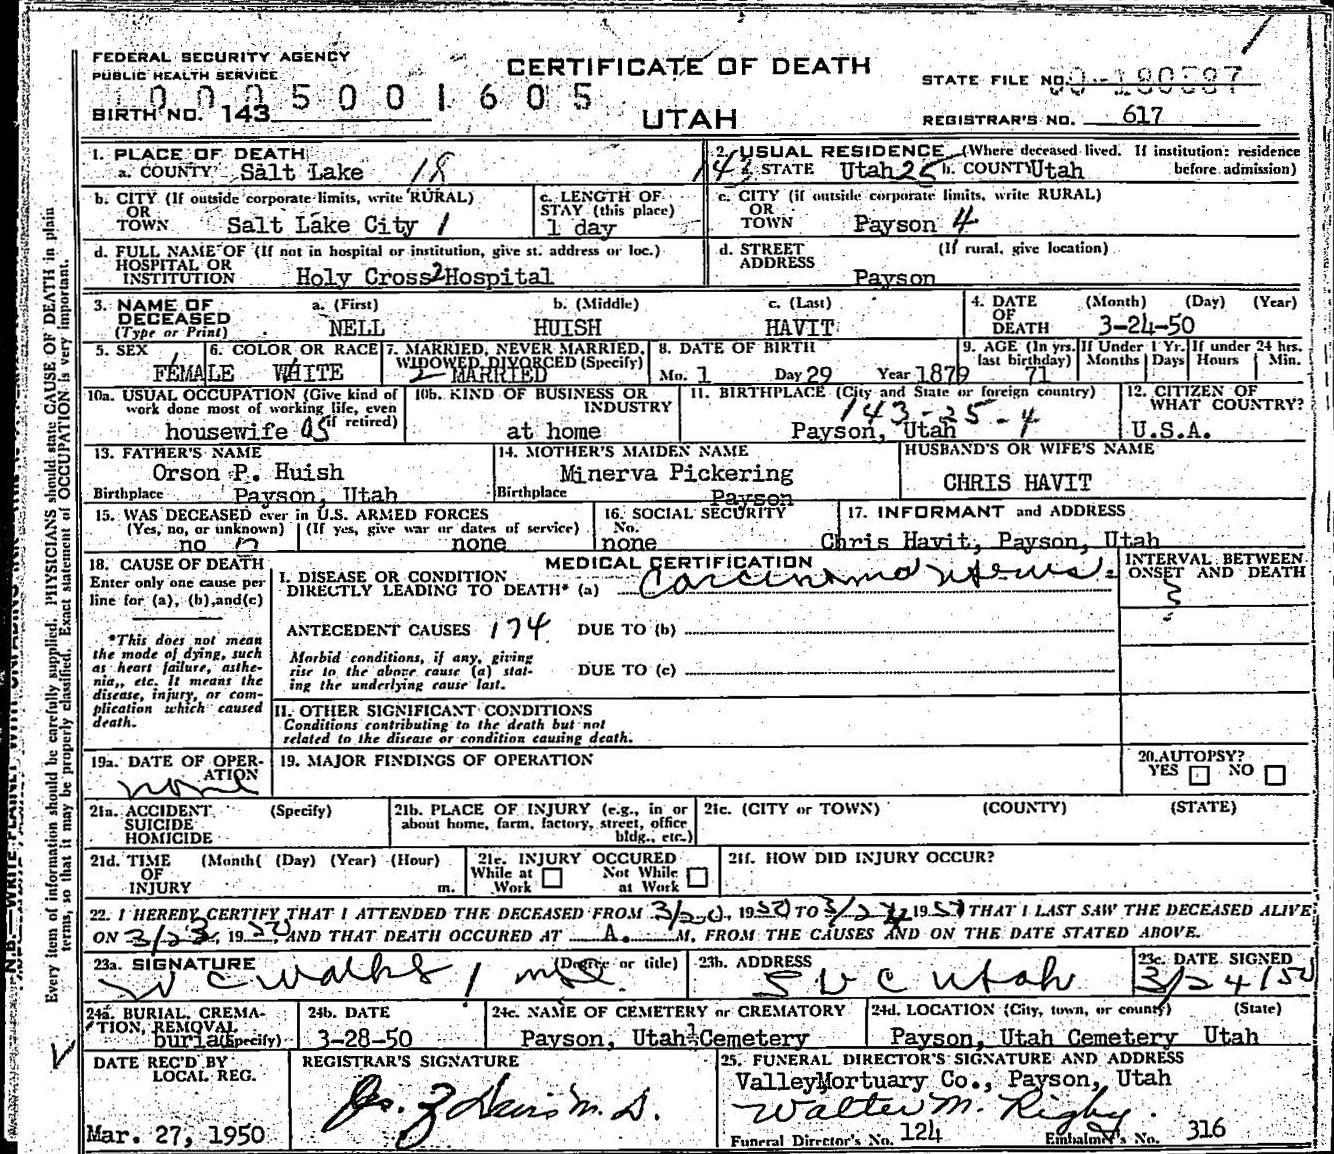 FEDERAL SECURITY AGENCY
PUBLIC HEALTH SERVICE
CERTIFICATE OF DEATH
STATE FILE NO.
1 0 0 0 5 0 0 1 6 0 5
BIRTH NO. 143
UTAH
REGISTRAR'S NO. 617
1. PLACE OF DEATH
a. COUNTY Salt Lake 18
2. USUAL RESIDENCE (Where deceased lived. If institution: residence before admission)
143 a. STATE Utah 25 b. COUNTY Utah
b. CITY (If outside corporate limits, write RURAL)
OR
TOWN Salt Lake City 1
c. LENGTH OF
STAY (this place)
1 day
c. CITY (if outside corporate limits, write RURAL)
OR
TOWN Payson 4
d. FULL NAME OF (If not in hospital or institution, give st. address or loc.)
HOSPITAL OR
INSTITUTION Holy Cross 2 Hospital
d. STREET (If rural, give location)
ADDRESS
Payson
3. NAME OF a. (First) b. (Middle) c. (Last)
DECEASED
(Type or Print) NELL HUISH HAVIT
4. DATE (Month) (Day) (Year)
OF
DEATH 3-24-50
5. SEX
FEMALE
6. COLOR OR RACE
WHITE
7. MARRIED, NEVER MARRIED,
WIDOWED, DIVORCED (Specify)
2 MARRIED
8. DATE OF BIRTH
Mo. 1 Day 29 Year 1879
9. AGE (In yrs. last birthday) If Under 1 Yr. Months Days If under 24 hrs. Hours Min.
71
10a. USUAL OCCUPATION (Give kind of
work done most of working life, even
if retired)
housewife 05
10b. KIND OF BUSINESS OR
INDUSTRY
at home
11. BIRTHPLACE (City and State or foreign country)
143-25-4
Payson, Utah
12. CITIZEN OF
WHAT COUNTRY?
U.S.A.
13. FATHER'S NAME
Orson P. Huish
Birthplace Payson, Utah
14. MOTHER'S MAIDEN NAME
Minerva Pickering
Birthplace Payson
HUSBAND'S OR WIFE'S NAME
CHRIS HAVIT
15. WAS DECEASED ever in U.S. ARMED FORCES
(Yes, no, or unknown) (If yes, give war or dates of service)
no none
16. SOCIAL SECURITY
No.
none
17. INFORMANT and ADDRESS
Chris Havit, Payson, Utah
18. CAUSE OF DEATH
Enter only one cause per
line for (a), (b), and (c)
*This does not mean
the mode of dying, such
as heart failure, asthe-
nia,, etc. It means the
disease, injury, or com-
plication which caused
death.
MEDICAL CERTIFICATION
I. DISEASE OR CONDITION
DIRECTLY LEADING TO DEATH* (a) Carcinoma uterus
ANTECEDENT CAUSES 174 DUE TO (b)
Morbid conditions, if any, giving
rise to the above cause (a) stat-
ing the underlying cause last.
DUE TO (c)
II. OTHER SIGNIFICANT CONDITIONS
Conditions contributing to the death but not
related to the disease or condition causing death.
INTERVAL BETWEEN
ONSET AND DEATH
19a. DATE OF OPER-
ATION
none
19. MAJOR FINDINGS OF OPERATION
20. AUTOPSY?
YES NO
21a. ACCIDENT (Specify)
SUICIDE
HOMICIDE
21b. PLACE OF INJURY (e.g., in or
about home, farm, factory, street, office
bldg., etc.)
21c. (CITY or TOWN) (COUNTY) (STATE)
21d. TIME (Month( (Day) (Year) (Hour)
OF
INJURY m.
21e. INJURY OCCURED
While at Work Not While at Work
21f. HOW DID INJURY OCCUR?
22. I HEREBY CERTIFY THAT I ATTENDED THE DECEASED FROM 3/20, 1950 TO 3/24, 1950 THAT I LAST SAW THE DECEASED ALIVE
ON 3/23, 1950, AND THAT DEATH OCCURED AT A. M, FROM THE CAUSES AND ON THE DATE STATED ABOVE.
23a. SIGNATURE (Degree or title)
W C Walks M.D.
23b. ADDRESS
S L C Utah
23c. DATE SIGNED
3/24/50
24a. BURIAL, CREMA-
TION, REMOVAL
burial (Specify)
24b. DATE
3-28-50
24c. NAME OF CEMETERY or CREMATORY
Payson, Utah Cemetery
24d. LOCATION (City, town, or county) (State)
Payson, Utah Cemetery Utah
DATE REC'D BY
LOCAL REG.
Mar. 27, 1950
REGISTRAR'S SIGNATURE
M.D.
25. FUNERAL DIRECTOR'S SIGNATURE AND ADDRESS
Valley Mortuary Co., Payson, Utah
Walter M. Rigby
Funeral Director's No. 124 Embalmer's No. 316
Every item of information should be carefully supplied. PHYSICIANS should state CAUSE OF DEATH in plain
terms, so that it may be properly classified. Exact statement of OCCUPATION is very important.